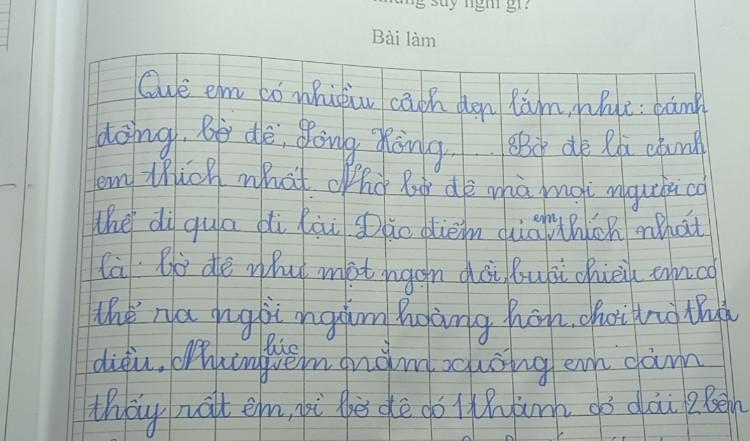 những suy nghĩ gì?
Bài làm
Quê em có nhiều cách đẹp lắm, như: cánh
đồng, bờ đê, sông Hồng,... Bờ đê là cảnh
em thích nhất. Nhờ bờ đê mà mọi người có
thể đi qua đi lại. Đặc điểm của em thích nhất
là bờ đê như một ngọn đồi, buổi chiều em có
thể ra ngồi ngắm hoàng hôn, chơi trò thả
diều. Nhưng lúc em nằm xuống em cảm
thấy rất êm, vì bờ đê có 1 thảm cỏ dài 2 bên